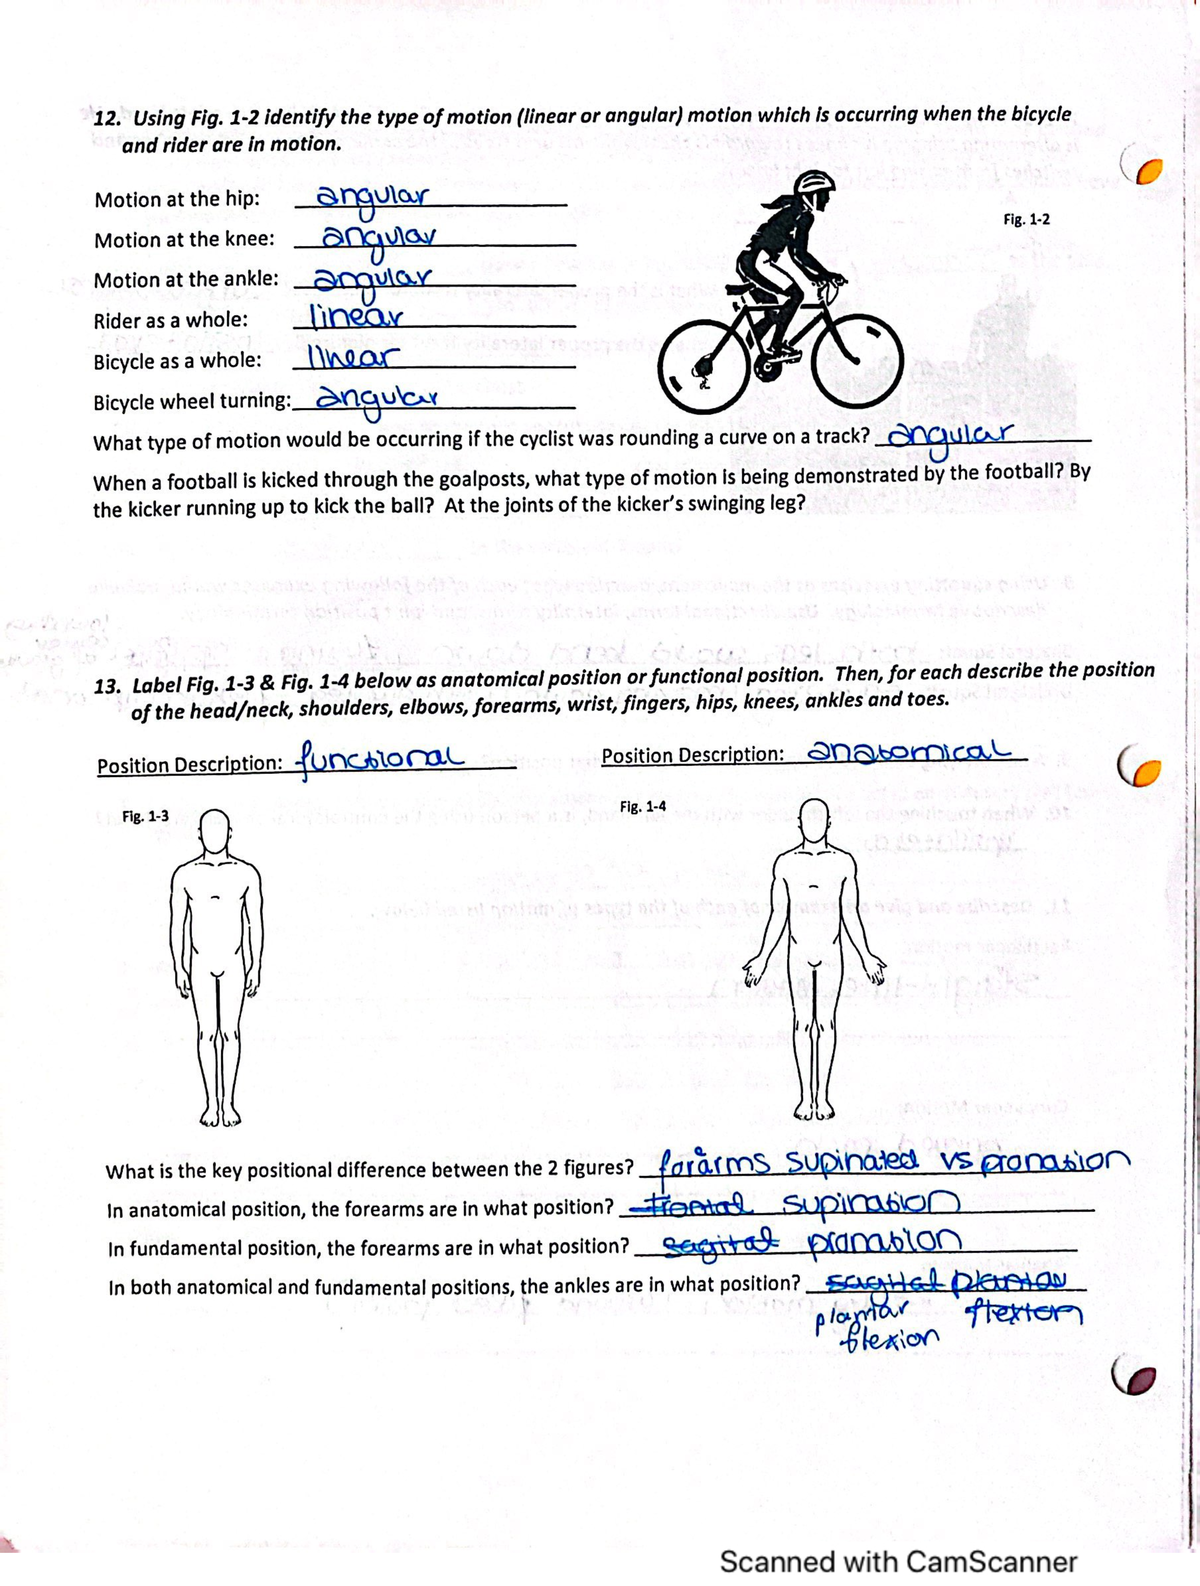 12. Using Fig. 1-2 identify the type of motion (linear or angular) motion which is occurring when the bicycle
and rider are in motion.
Motion at the hip: angular
Fig. 1-2
Motion at the knee: angular
Motion at the ankle: angular
Rider as a whole: linear
Bicycle as a whole: linear
Bicycle wheel turning: angular
What type of motion would be occurring if the cyclist was rounding a curve on a track? angular
When a football is kicked through the goalposts, what type of motion is being demonstrated by the football? By
the kicker running up to kick the ball? At the joints of the kicker's swinging leg?
13. Label Fig. 1-3 & Fig. 1-4 below as anatomical position or functional position. Then, for each describe the position
of the head/neck, shoulders, elbows, forearms, wrist, fingers, hips, knees, ankles and toes.
Position Description: functional Position Description: anatomical
Fig. 1-3 Fig. 1-4
What is the key positional difference between the 2 figures? forarms supinated vs pronation
In anatomical position, the forearms are in what position? frontal supination
In fundamental position, the forearms are in what position? sagital pronation
In both anatomical and fundamental positions, the ankles are in what position? sagittal plantar
plantar flexion
flexion
Scanned with CamScanner